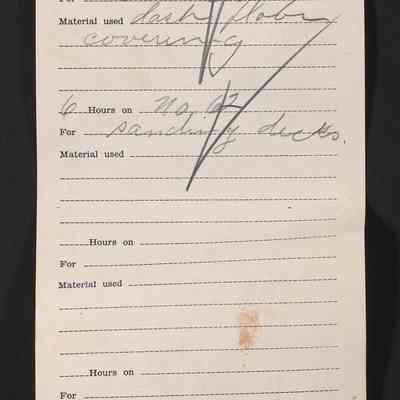 For
Material used dash floor
covering
6 Hours on No. 62
For sanding decks.
Material used
Hours on
For
Material used
Hours on
For